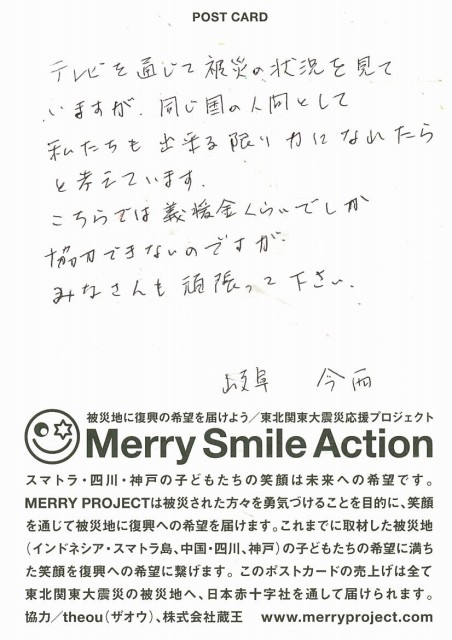 POST CARD
テレビを通じて被災の状況を見て
いますが、同じ国の人間として
私たちも出来る限り力になれたら
と考えています.
こちらでは義援金くらいでしか
協力できないのですが、
みなさんも頑張って下さい.
岐阜 今西
被災地に復興の希望を届けよう／東北関東大震災応援プロジェクト
Merry Smile Action
スマトラ・四川・神戸の子どもたちの笑顔は未来への希望です。
MERRY PROJECTは被災された方々を勇気づけることを目的に、笑顔
を通じて被災地に復興への希望を届けます。これまでに取材した被災地
（インドネシア・スマトラ島、中国・四川、神戸）の子どもたちの希望に満ち
た笑顔を復興への希望に繋げます。このポストカードの売上げは全て
東北関東大震災の被災地へ、日本赤十字社を通して届けられます。
協力／theou（ザオウ）、株式会社蔵王　www.merryproject.com